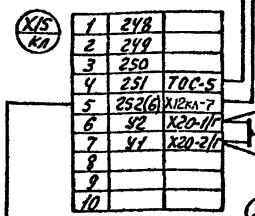 X15
КЛ
1 248
2 249
3 250
4 251 ТОС-5
5 252(6) X12КЛ-7
6 У2 X20-1/Г
7 У1 X20-2/Г
8
9
10